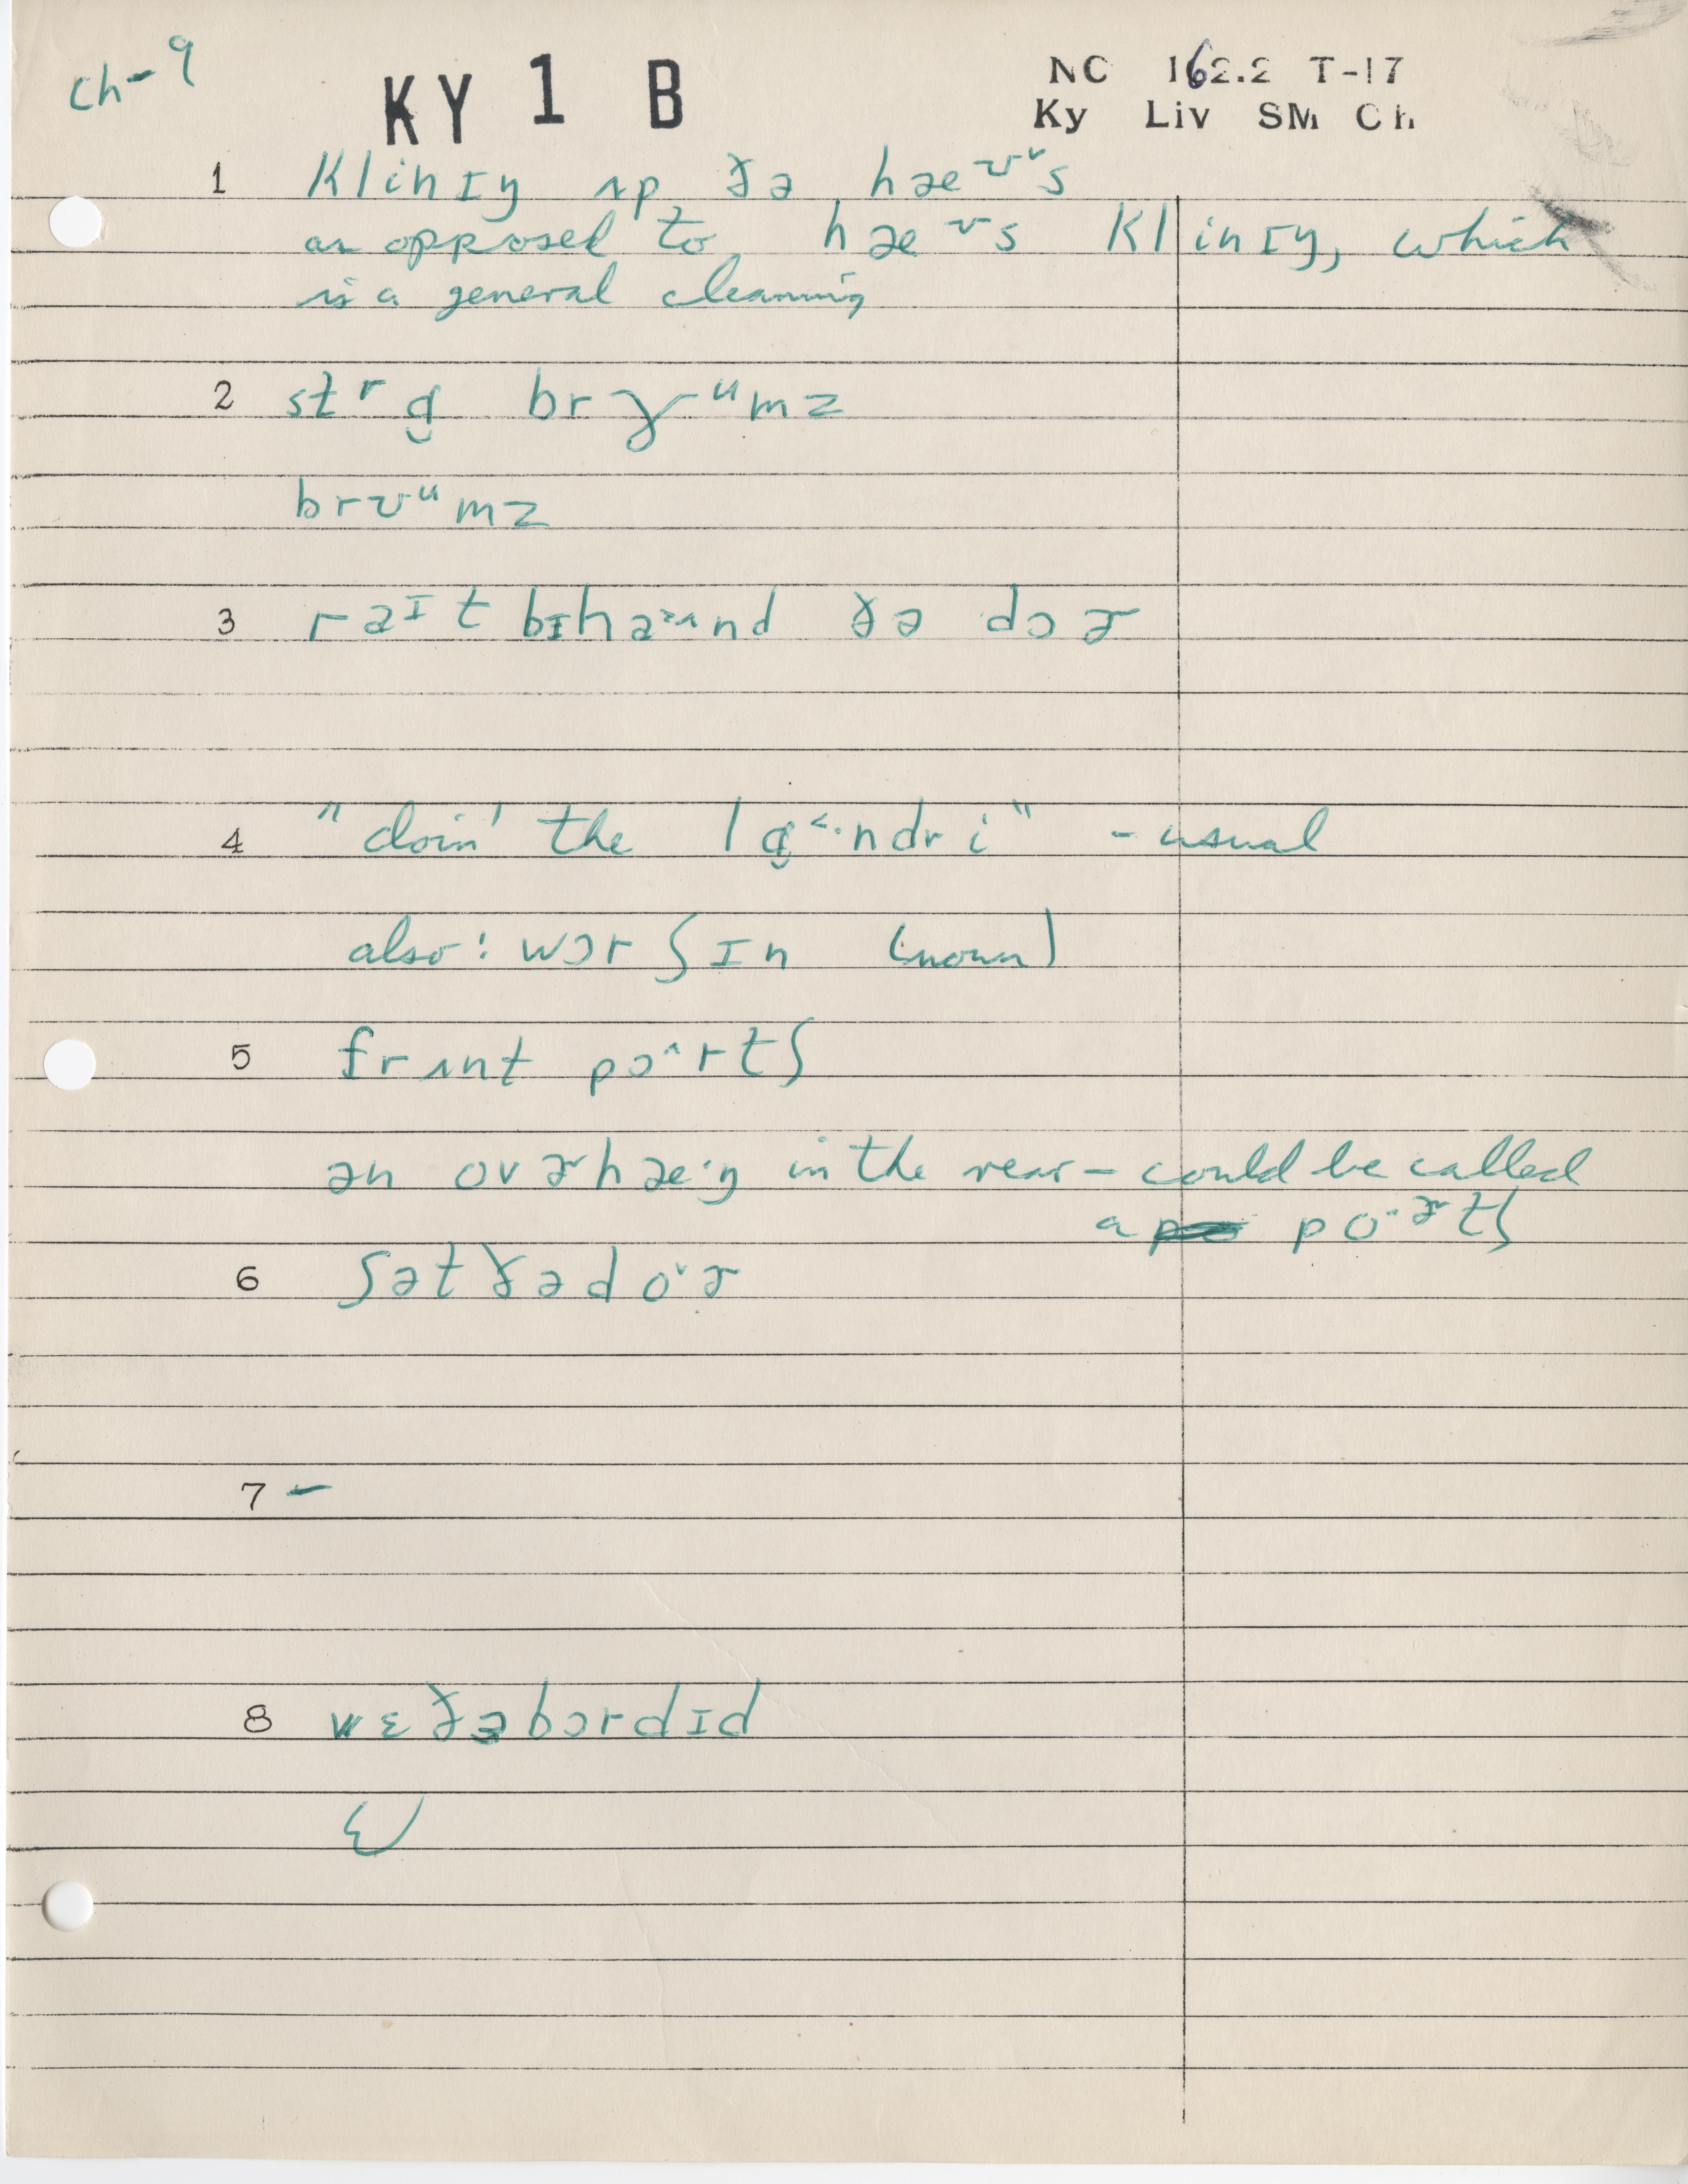 ch-9
KY 1 B
NC 162.2 T-17
Ky Liv SM Ch
1 klinɪŋ ʌp ðə hæʊ˅s
as opposed to hæʊs klinɪŋ, which
is a general cleaning
2 brɤᵘmz
brʊᵘmz
3 raɪt bɪhaʊnd ðə dɔɚ
4 "doin' the ndri" - usual
also: wɔrʃɪn (noun)
5 frʌnt pɔ˄rtʃ
an ovɚhæ·ŋ in the rear - could be called
a poɚtʃ
6 ʃətðədoɚ
7 -
8 wɛðəbɔrdɪd